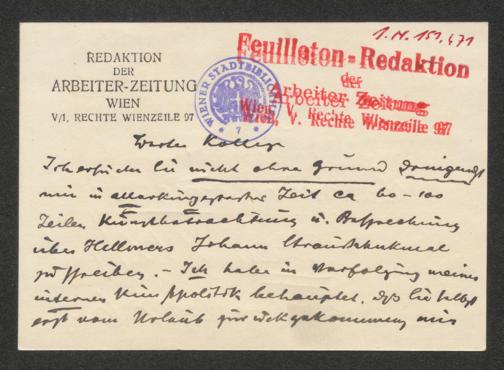 1.N. 151.471
REDAKTION
DER
ARBEITER-ZEITUNG
WIEN
V/1. RECHTE WIENZEILE 97
WIENER STADTBIBLIOTHEK
* 7 *
Feuilleton-Redaktion
der
Arbeiter Zeitung
Wien, V. Rechte Wienzeile 97
Werter Kollege
Ich ersuche Sie nicht ohne Grund dringendst
mir in allerkürzester Zeit ca 60-100
Zeilen Kunstbetrachtung u. Besprechung
über Hellmers Johann Straußdenkmal
zu schreiben. – Ich habe in Verfolgung meiner
internen Kunstpolitik behauptet, daß Sie selbst
erst vom Urlaub zurückgekommen mir